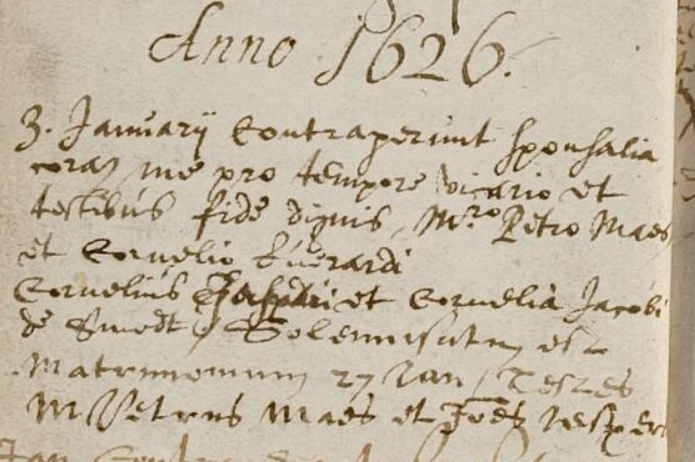 Anno 1626.
3. Januarij Contraxerunt sponsalia
coram me pro tempore vicario et
testibus fide dignis, M.ro Petro Maes
et Cornelio Everardi
Cornelius Jaspari et Cornelia Jacobi
de Smedt / Solemnisatum est
Matrimonium 27 Jan / Testes
M Petrus Maes et Joes Jesper
Jan